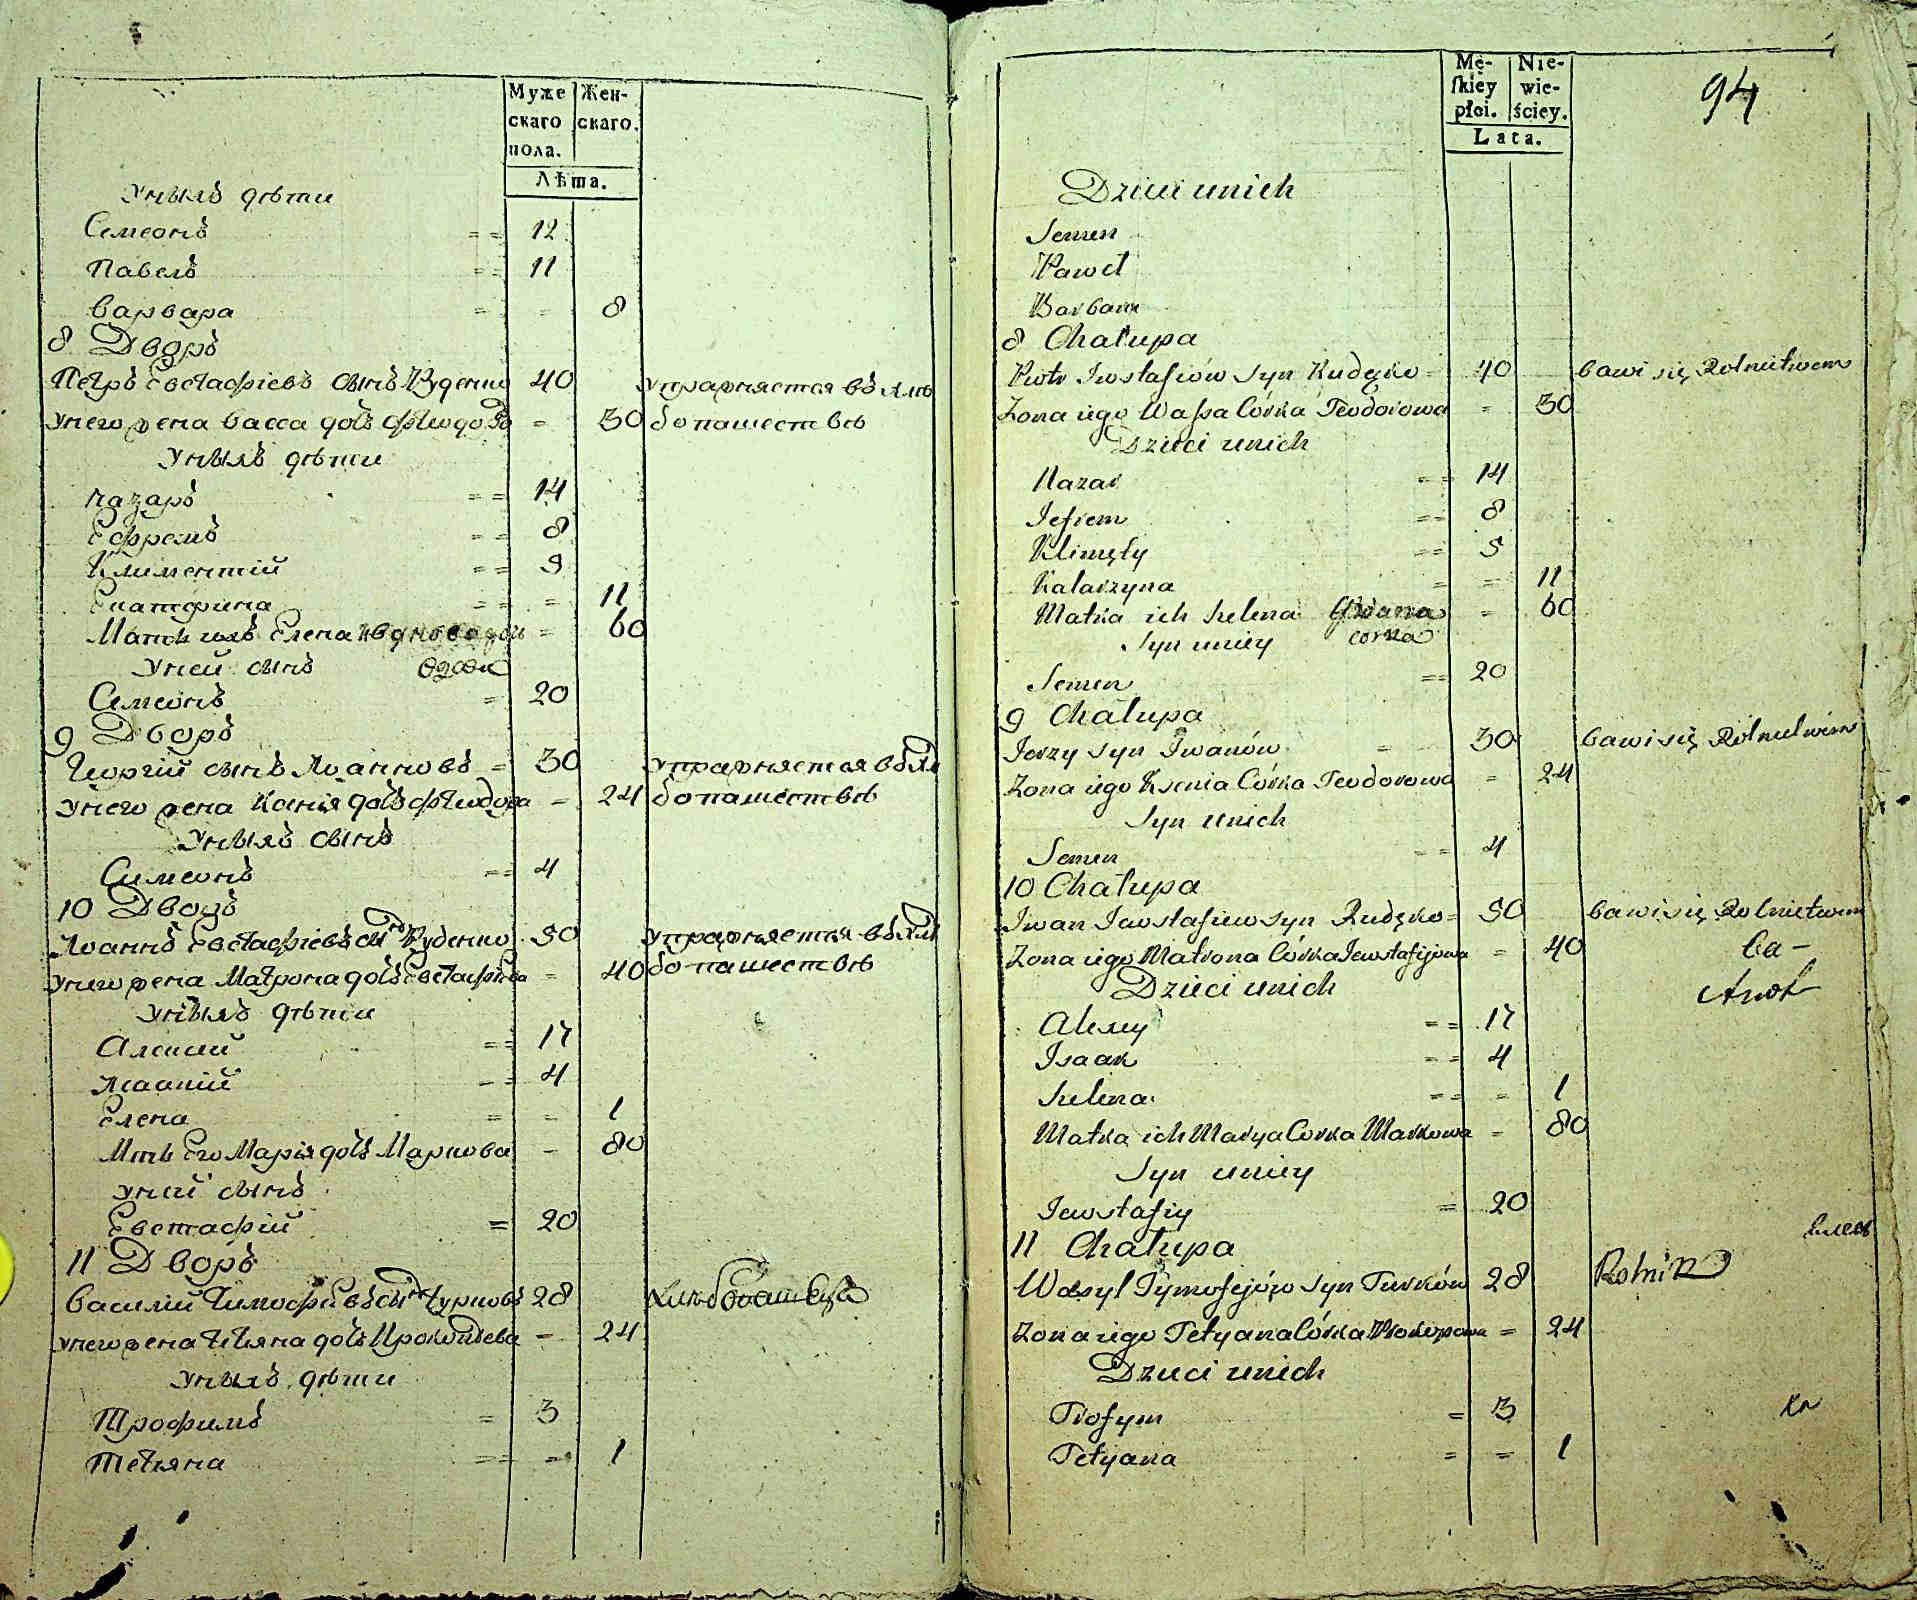 Муже Жен-
скаго скаго.
пола.
Лѣта.
Унихъ дѣти
Семеонъ = = 12
Павелъ = = 11
Варвара = = 8
8 Дворъ
Петръ Евстафіевъ сынъ Руденко 40 упражняется въ хлѣ
Унего жена Васса дочь Феодоро = 30 бопашествѣ
Унихъ дѣти
Назаръ = = 14
Ефремъ = = 8
Климентій = = 5
Екатерина = = = 11
Матъ ихъ Елена Иванова дочь = 60
Уней сынъ вдова
Семеонъ = 20
9 Дворъ
Георгій сынъ Іоанновъ = 30 упражняется въ хлѣ
Унего жена Ксенія дочь Феодора = 24 бопашествѣ
Унихъ сынъ
Симеонъ = = 4
10 Дворъ
Іоаннъ Евстафіевъ сынъ Руденко 50 упражняется въ хлѣ
Унего жена Матрона дочь Евстафіева = 40 бопашествѣ
Унихъ дѣти
Алексій = = 17
Ісаакій = = 4
Елена = = 1
Мать Его Марія дочь Маркова = 80
Уней сынъ
Евстафій = 20
11 Дворъ
Василій Тимофіевъ сынъ Турковъ 28 хлѣбопашецъ
Унего жена Тетяна дочь Прокопіева = 24
Унихъ дѣти
Трофимъ = 3
Тетяна = = = 1
Mę- Nie-
skiey wie-
płci. ściey.
Lata.
94
Dzieci unich
Semen
Paweł
Barbara
8 Chałupa
Piotr Jwstafiów syn Rudęko = 40 bawi się Rolnictwem
Zona iego Wassa Córka Teodorowa = 30
Dzieci unich
Nazar = = 14
Jefrem = = 8
Klimęty = = 5
Katarzyna = = 11
Matka ich Helena Jwana = 60
Syn uniey corka
Semen = = 20
9 Chałupa
Jerzy syn Jwanów = 30 bawi się Rolnictwem
Zona iego Ksenia Córka Teodorowa = 24
Syn unich
Semen = = 4
10 Chałupa
Jwan Jewstafiew syn Rudęko = 50 bawi się Rolnictwem
Zona iego Matrona Córka Jewstafijowa = 40
Dzieci unich
Alexey = = 17
Isaak = = 4
Helena = = = 1
Matka ich Marya Corka Markowa = 80
Syn uniey
Jewstafiy = 20
11 Chałupa
Wasyl Tymofijów syn Turków 28 Rolnik
Zona iego Tetyana Córka Prokopowa = 24
Dzieci unich
Trofym = 3
Tetyana = = 1